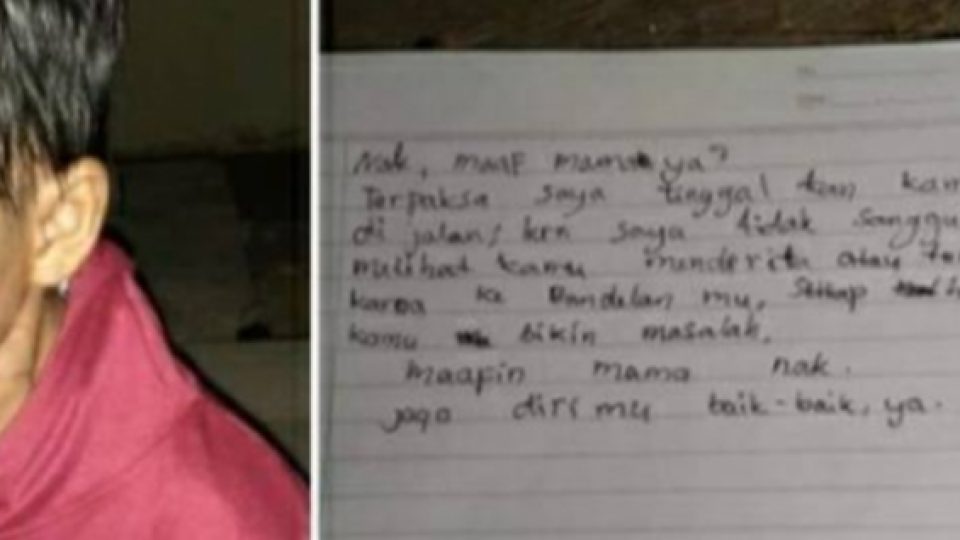 Nak, maaf mama ya?
Terpaksa saya tinggal kan kam
di jalan, krn saya tidak sanggu
melihat kamu menderita atau
karna ke Bandelan mu, Setiap
kamu bikin masalah.
maafin mama nak.
jaga diri mu baik-baik, ya.